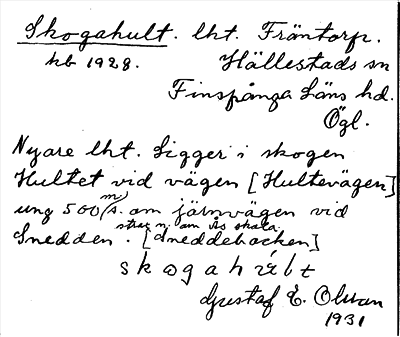 Skogahult. lht. Fräntorp.
kb 1928. Hällestads sn
Finspånga Läns hd.
Ögl.
Nyare lht. Ligger i skogen
Hultet vid vägen [Hultevägen]
ung 500 m s. om järnvägen vid
strax n. om Ås skola
Snedden. [Sneddebacken]
skogahult
Gustaf E. Olsson
1931